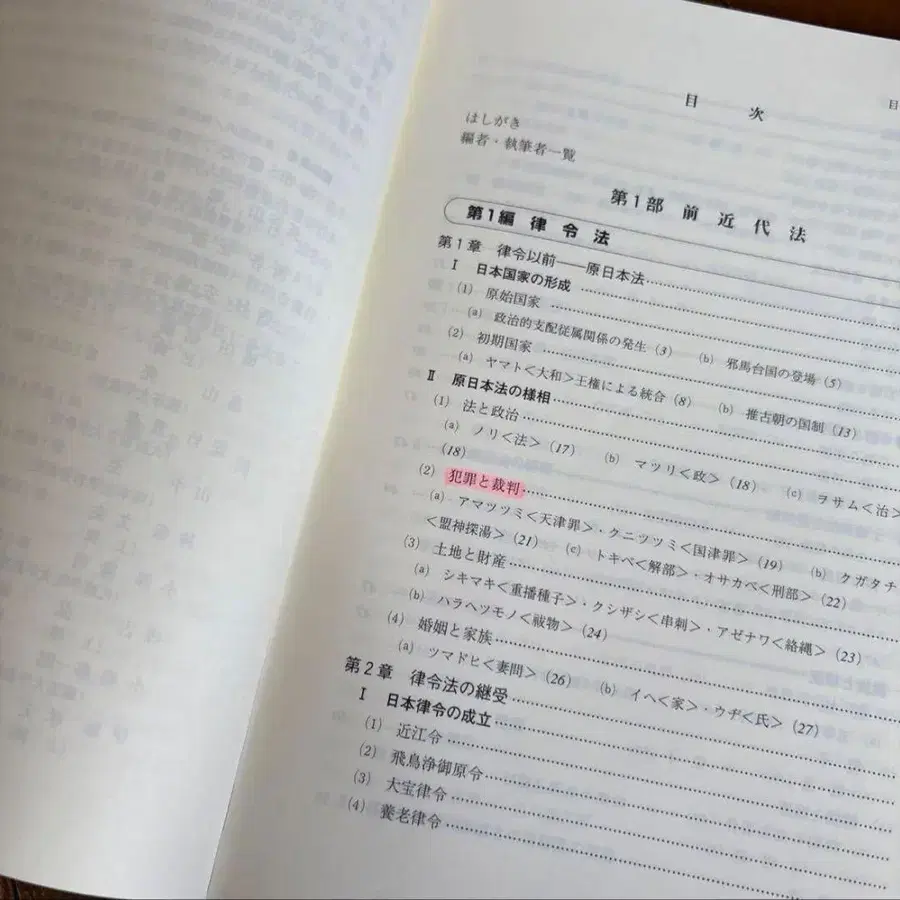 目
目　次
はしがき
編者・執筆者一覧
第1部 前近代法
第1編 律令法
第1章 律令以前——原日本法
Ⅰ 日本国家の形成
(1) 原始国家
(a) 政治的支配従属関係の発生 (3) (b) 邪馬台国の登場 (5)
(2) 初期国家
(a) ヤマト<大和>王権による統合 (8) (b) 推古朝の国制 (13)
Ⅱ 原日本法の様相
(1) 法と政治
(a) ノリ<法> (17) (b) マツリ<政> (18) (c) ヲサム<治>
(18)
(2) 犯罪と裁判
(a) アマツツミ<天津罪>・クニツツミ<国津罪> (19) (b) クガタチ
<盟神探湯> (21) (c) トキベ<解部>・オサカベ<刑部> (22)
(3) 土地と財産
(a) シキマキ<重播種子>・クシザシ<串刺>・アゼナワ<絡縄> (23)
(b) ハラヘツモノ<祓物> (24)
(4) 婚姻と家族
(a) ツマドヒ<妻問> (26) (b) イヘ<家>・ウヂ<氏> (27)
第2章 律令法の継受
Ⅰ 日本律令の成立
(1) 近江令
(2) 飛鳥浄御原令
(3) 大宝律令
(4) 養老律令